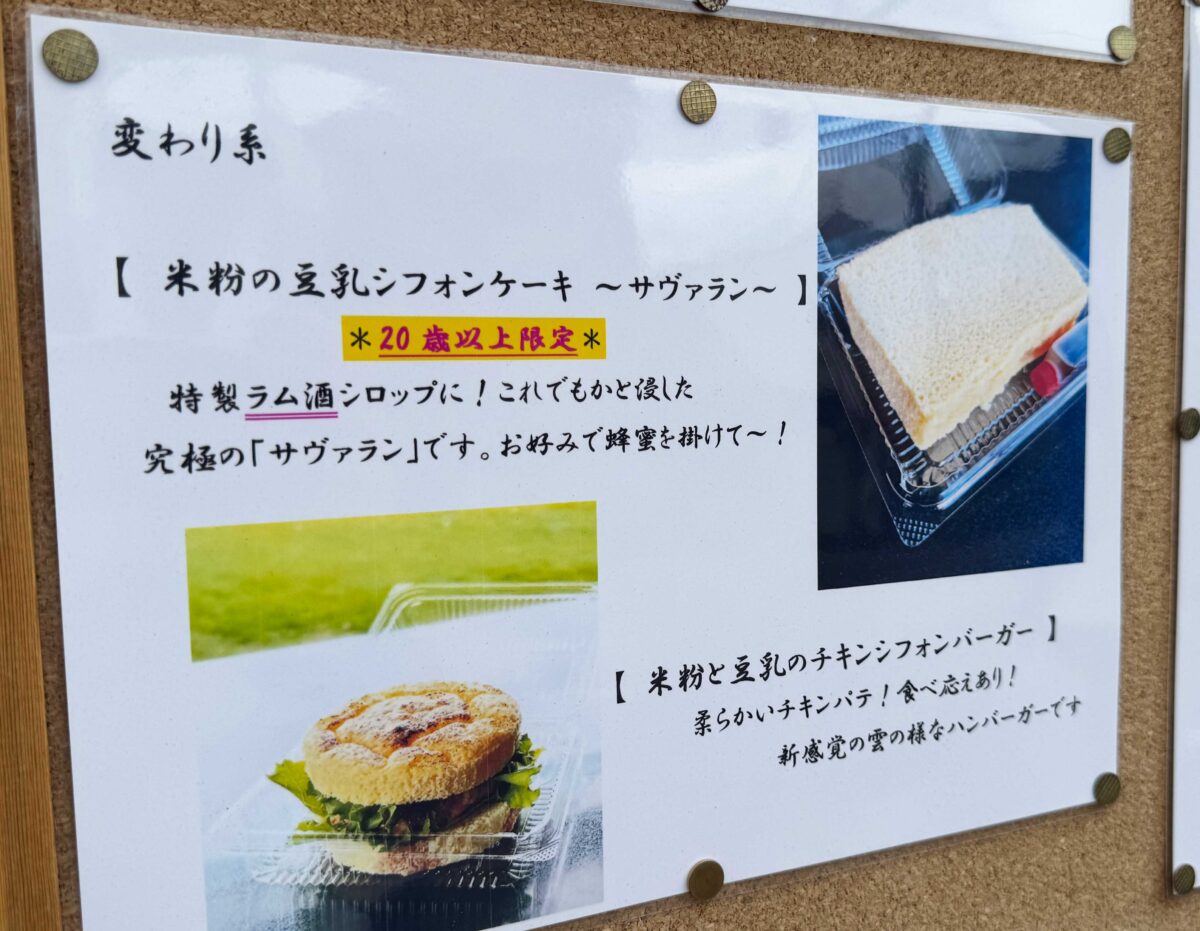 変わり系
【 米粉の豆乳シフォンケーキ ～サヴァラン～ 】
＊20歳以上限定＊
特製ラム酒シロップに！これでもかと浸した
究極の「サヴァラン」です。お好みで蜂蜜を掛けて～！
【 米粉と豆乳のチキンシフォンバーガー 】
柔らかいチキンパテ！食べ応えあり！
新感覚の雲の様なハンバーガーです